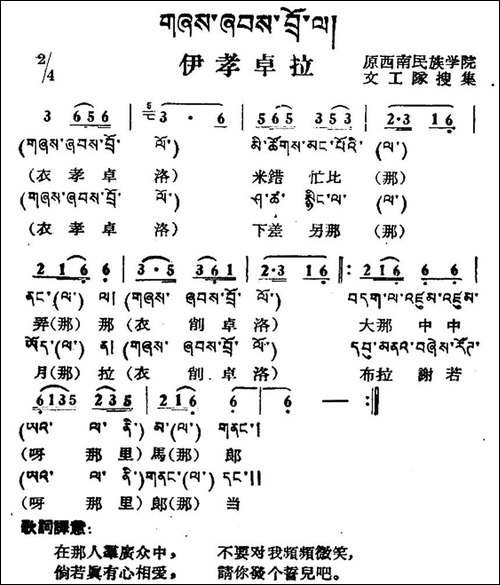 གཞས་ཞབས་བྲོ་ལ།
2/4 伊孝卓拉 原西南民族学院
文工隊搜集
3 656 3· 6 565 353 2·3 16
(གཞས་ཞབས་བྲོ་ ལོ་) མི་ཚོགས་མང་པོའི་ (ལ་)
(衣孝卓 洛) 米錯 忙比 (那)
(གཞས་ཞབས་བྲོ་ ལོ་) ཤ་ཚ་ སྙིང་ལ་ (ལ་)
(衣孝卓 洛) 下差 另那 (那)
2 1 6 6 3·5 361 2·3 16 2 1 6 6 6
ནང་(ལ་) ལ། (གཞས་ ཞབས་བྲོ་ ལོ་) བདག་ལ་འཛུམ་འཛུམ་
弄(那) 那 (衣 削卓 洛) 大那 中中
ཡོད་(ལ་) ན། (གཞས་ ཞབས་བྲོ་ ལོ་) དབུ་མནའ་བཞེས་རོཊ་
月(那) 拉 (衣 削卓 洛) 布拉 謝若
6135 235 2 1 6 6 6 —
(ཡའ་ ལ་ ནི་) མ་(ལ་) གནང་།
(呀 那 里) 馬(那) 郎
(ཡའ་ ལ་ ནི་) གནང་(ལ་) དང་།།
(呀 那 里) 郎(那) 当
歌詞譯意:
在那人羣廣众中， 不要对我頻頻微笑，
倘若眞有心相愛， 請你發个誓兒吧。